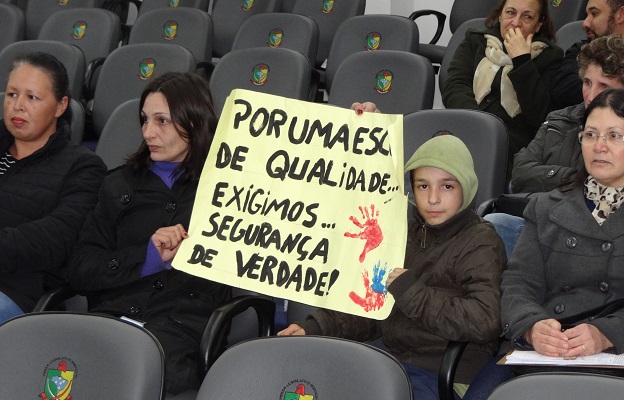 POR UMA ESC
DE QUALIDADE...
EXIGIMOS...
SEGURANÇA
DE VERDADE!